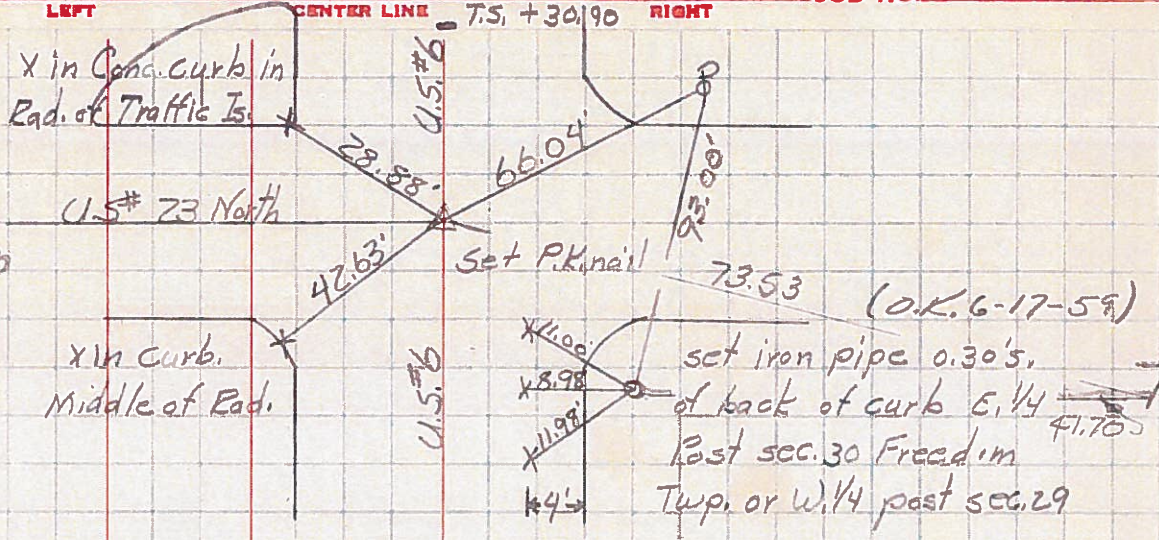 LEFT CENTER LINE T.S. + 30.90 RIGHT
X in Conc. curb in
Rad. of Traffic Is.
U.S. #6
28.88'
66.04'
93.00'
U.S # 23 North
42.63'
Set P.K. nail
73.53
(O.K. 6-17-59)
X in curb.
Middle of Rad.
U.S. #6
11.00'
8.98
11.98'
4'
set iron pipe 0.30's.
of back of curb E. 1/4
41.70
Post sec. 30 Freedom
Twp. or W. 1/4 post sec. 29